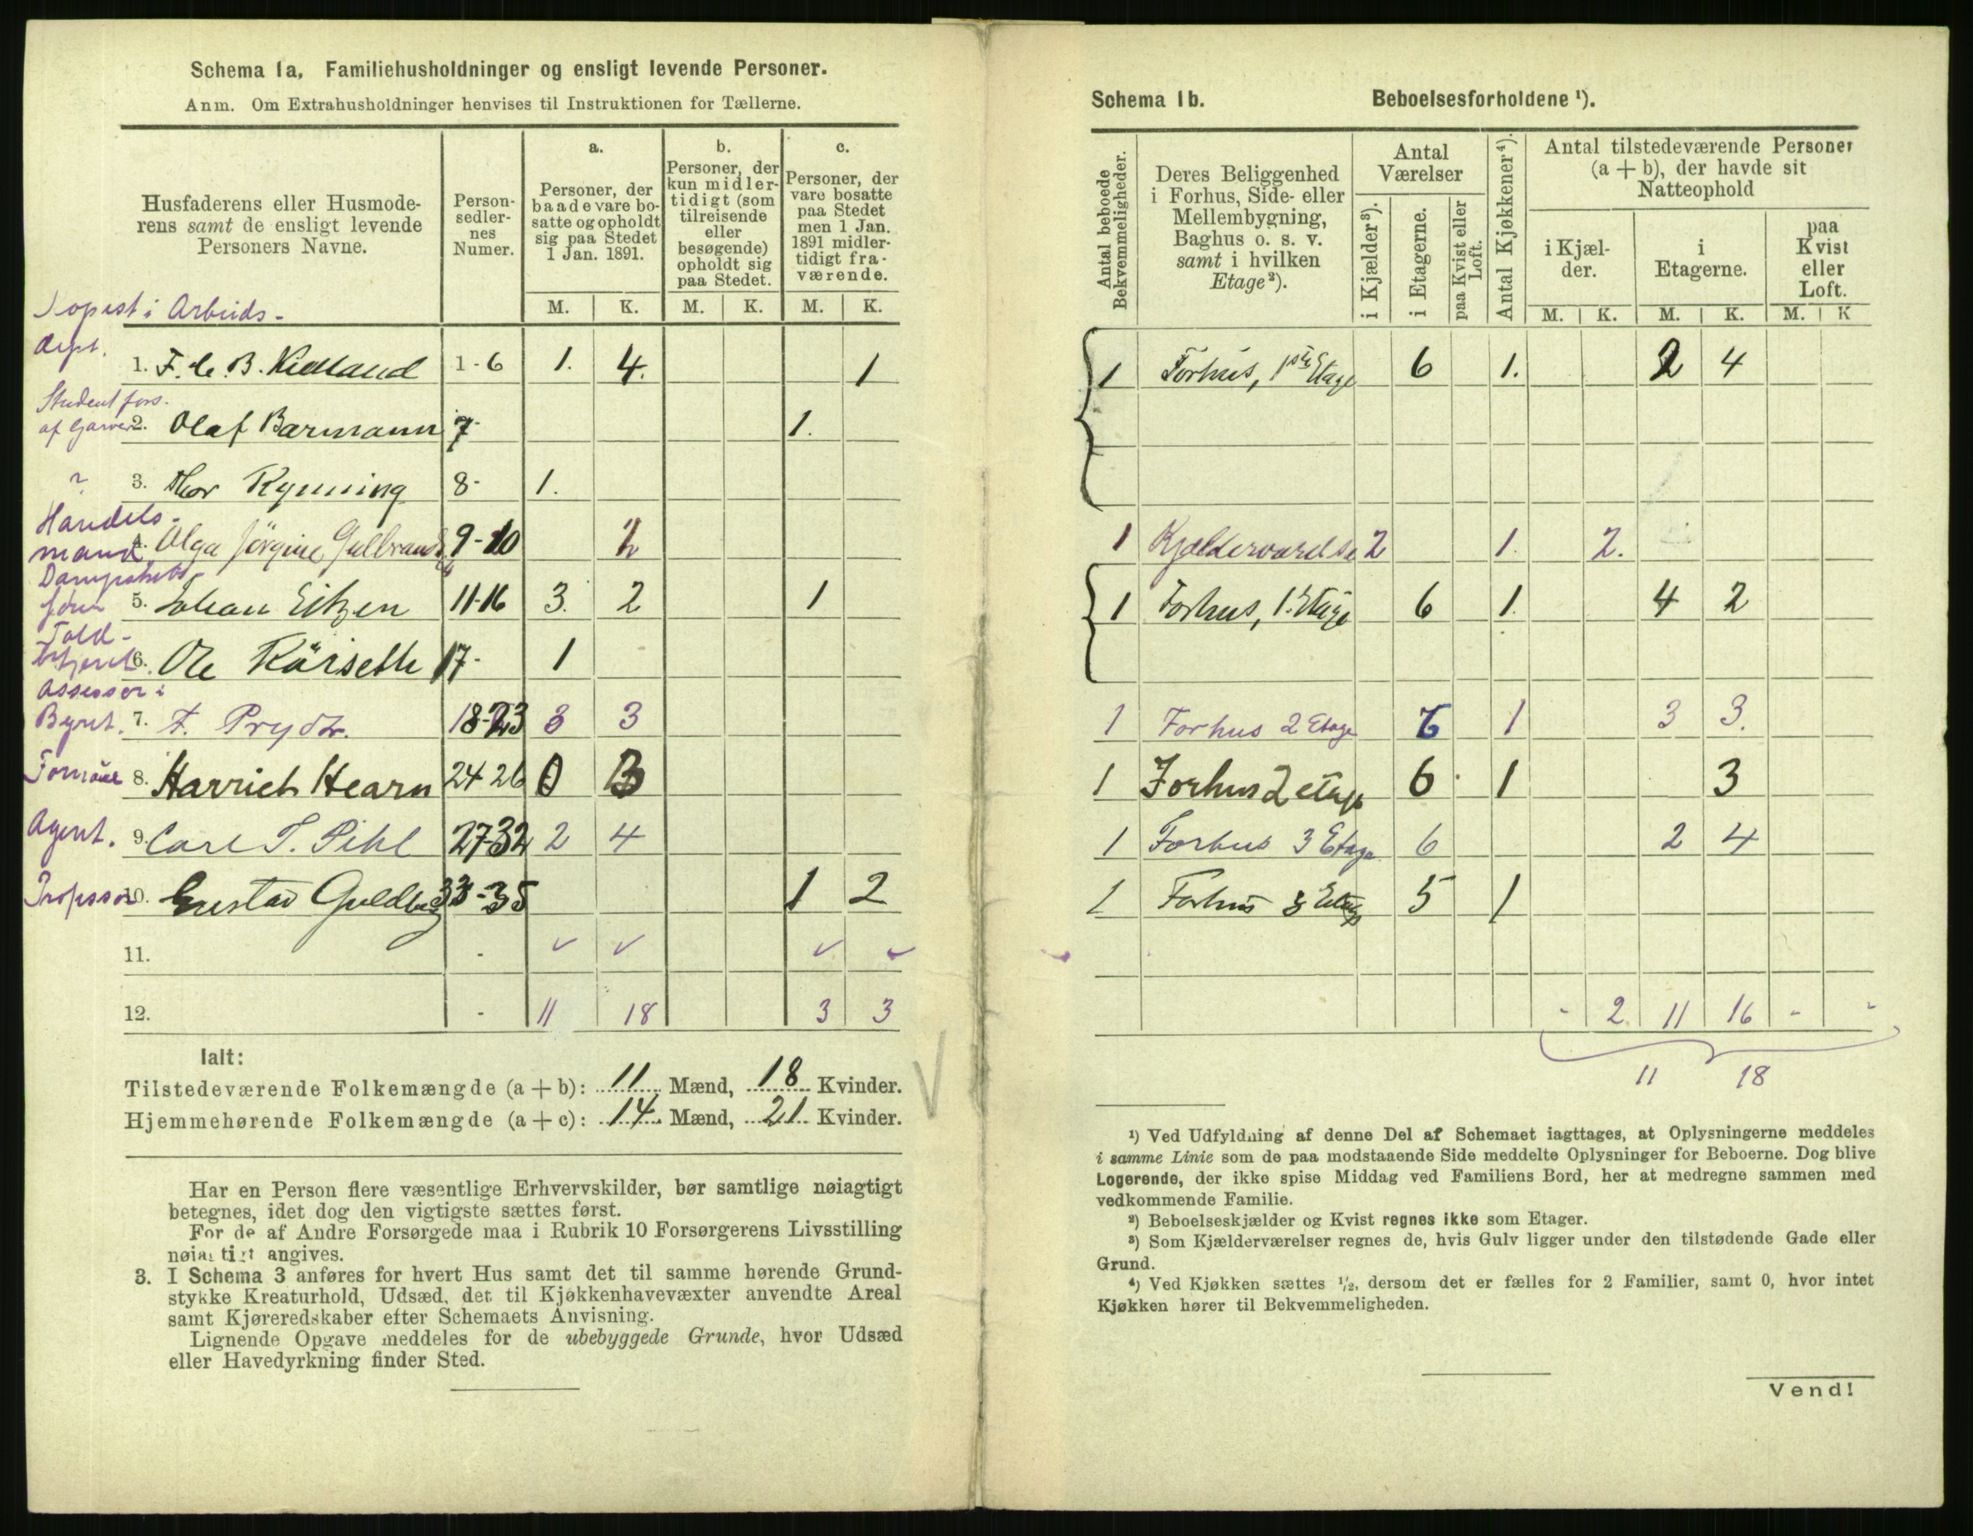 Schema 1a. Familiehusholdninger og ensligt levende Personer.
Anm. Om Extrahusholdninger henvises til Instruktionen for Tællerne.
Husfaderens eller Husmoderens samt de ensligt levende Personers Navne.
Personsedlernes Numer.
a. Personer, der baade vare bosatte og opholdt sig paa Stedet 1 Jan. 1891.
b. Personer, der kun midlertidigt (som tilreisende eller besøgende) opholdt sig paa Stedet.
c. Personer, der vare bosatte paa Stedet men 1 Jan. 1891 midlertidigt fraværende.
M. K. M. K. M. K.
i Arbeids-
dept. 1. F. C. B. Kielland 1-6 1. 4. 1
Student fors.
af Garver 2. Olaf Barmann 7- 1.
? 3. Thor Rynning 8- 1.
Handels-
mand 4. Olga Jørgine Gulbrands 9-10 2
Dampskibs-
fører 5. Johan Eitzen 11-16 3. 2 1
Told-
betjent 6. Ole Körseth 17- 1
Assessor i
Byret. 7. F. Prydz. 18-23 3 3
8. Harriet Hearn 24 26 0 3
Agent. 9. Carl T. Pihl 27-32 2 4
Professor 10. Gustav Guldberg 33-35 1 2
11. -
12. - 11 18 3 3
Ialt:
Tilstedeværende Folkemængde (a + b): 11 Mænd, 18 Kvinder.
Hjemmehørende Folkemængde (a + c): 14. Mænd, 21 Kvinder.
Har en Person flere væsentlige Erhvervskilder, bør samtlige nøiagtigt
betegnes, idet dog den vigtigste sættes først.
For de af Andre Forsørgede maa i Rubrik 10 Forsørgerens Livsstilling
nøiagtigt angives.
3. I Schema 3 anføres for hvert Hus samt det til samme hørende Grund-
stykke Kreaturhold, Udsæd, det til Kjøkkenhavevæxter anvendte Areal
samt Kjøreredskaber efter Schemaets Anvisning.
Lignende Opgave meddeles for de ubebyggede Grunde, hvor Udsæd
eller Havedyrkning finder Sted.
Schema 1b. Beboelsesforholdene ¹).
Antal beboede Bekvemmeligheder.
Deres Beliggenhed i Forhus, Side- eller Mellembygning, Baghus o. s. v. samt i hvilken Etage ²).
Antal Værelser
i Kjælder ³).
i Etagerne.
paa Kvist eller Loft.
Antal Kjøkkener ⁴).
Antal tilstedeværende Personer (a + b), der havde sit Natteophold
i Kjælder.
i Etagerne.
paa Kvist eller Loft.
M. K. M. K. M. K
1 Forhus, 1ste Etage 6 1. 2 4
1 Kjælderværelse 2 1. 2.
1 Forhus, 1. Etage 6 1. 4 2
1 Forhus 2 Etage 6 1 3 3.
1 Forhus 2 etage 6 1 3
1 Forhus 3 Etage 6 2 4
1 Forhus 3 Etage 5 1
- 2 11 16 - -
11 18
¹) Ved Udfyldning af denne Del af Schemaet iagttages, at Oplysningerne meddeles
i samme Linie som de paa modstaaende Side meddelte Oplysninger for Beboerne. Dog blive
Logerende, der ikke spise Middag ved Familiens Bord, her at medregne sammen med
vedkommende Familie.
²) Beboelseskjælder og Kvist regnes ikke som Etager.
³) Som Kjælderværelser regnes de, hvis Gulv ligger under den tilstødende Gade eller
Grund.
⁴) Ved Kjøkken sættes ½, dersom det er fælles for 2 Familier, samt 0, hvor intet
Kjøkken hører til Bekvemmeligheden.
Vend!